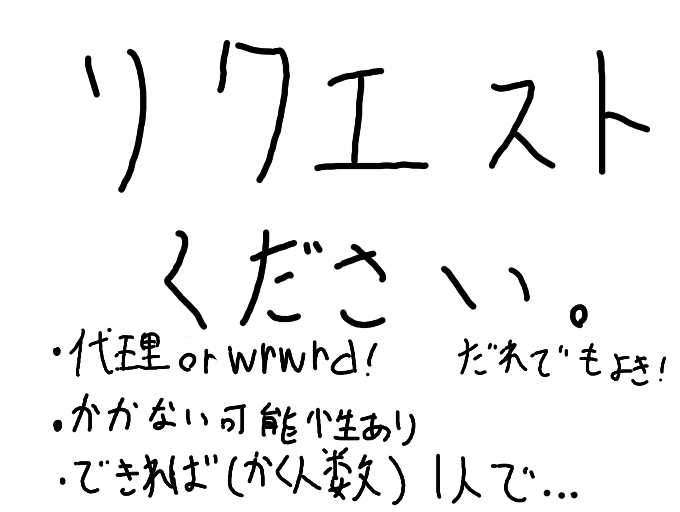 リクエスト
ください。
・代理orwrwrd! だれでもよき!
・かかない可能性あり
・できれば(かく人数)1人で...